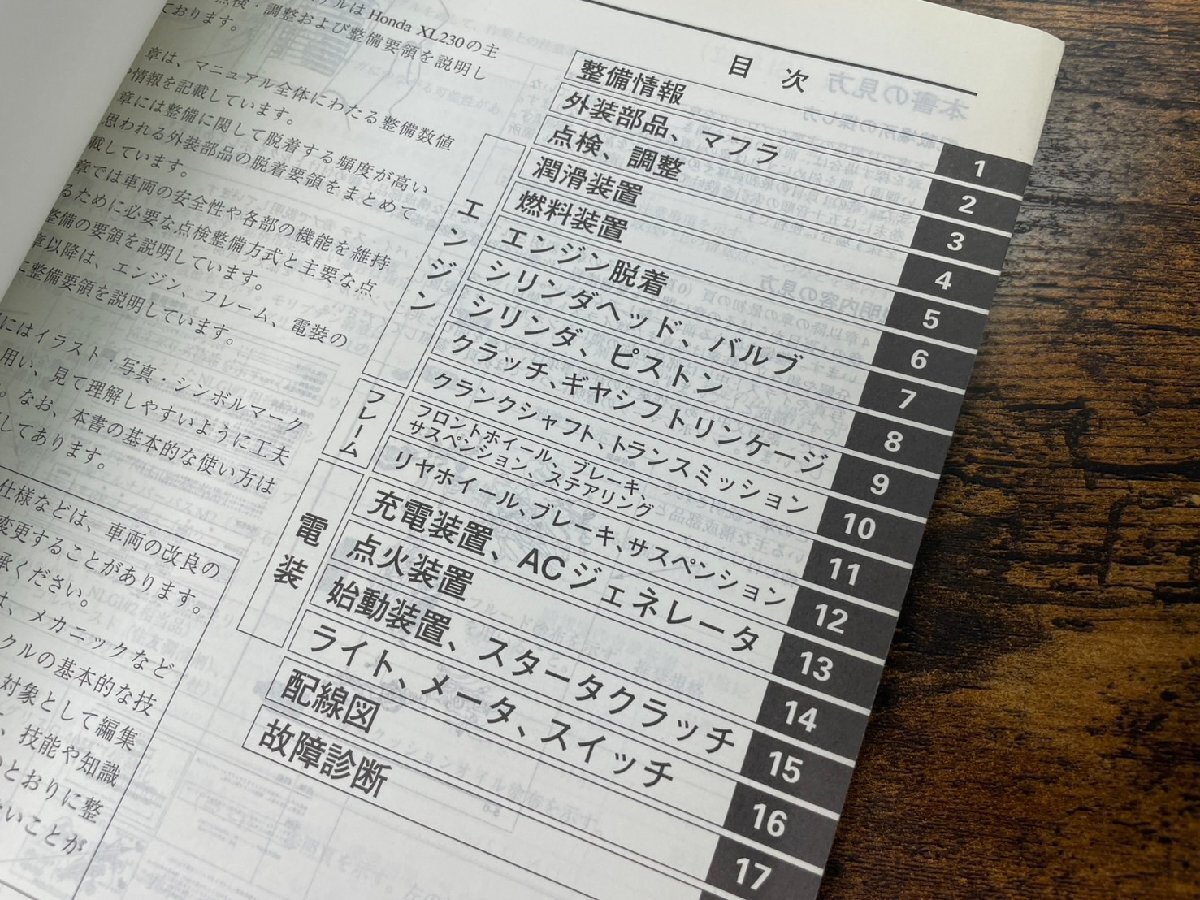 ルはHonda XL230の主
点検・調整および整備要領を説明し
ております。
章は、マニュアル全体にわたる整備数値
情報を記載しています。
章には整備に関して脱着する頻度が高い
思われる外装部品の脱着要領をまとめて
載しています。
章では車両の安全性や各部の機能を維持
るために必要な点検整備方式と主要な点
整備の要領を説明しています。
章以降は、エンジン、フレーム、電装の
整備要領を説明しています。
にはイラスト・写真・シンボルマーク
用い、見て理解しやすいように工夫
。なお、本書の基本的な使い方は
してあります。
仕様などは、車両の改良の
変更することがあります。
承ください。
は、メカニックなど
クルの基本的な技
対象として編集
て、技能や知識
いとおりに整
ないことが
目 次
整備情報 1
外装部品、マフラ 2
点検、調整 3
エンジン
潤滑装置 4
燃料装置 5
エンジン脱着 6
シリンダヘッド、バルブ 7
シリンダ、ピストン 8
クラッチ、ギヤシフトリンケージ 9
クランクシャフト、トランスミッション 10
フレーム
フロントホイール、ブレーキ、
サスペンション、ステアリング 11
リヤホイール、ブレーキ、サスペンション 12
電装
充電装置、ACジェネレータ 13
点火装置 14
始動装置、スタータクラッチ 15
ライト、メータ、スイッチ 16
配線図 17
故障診断